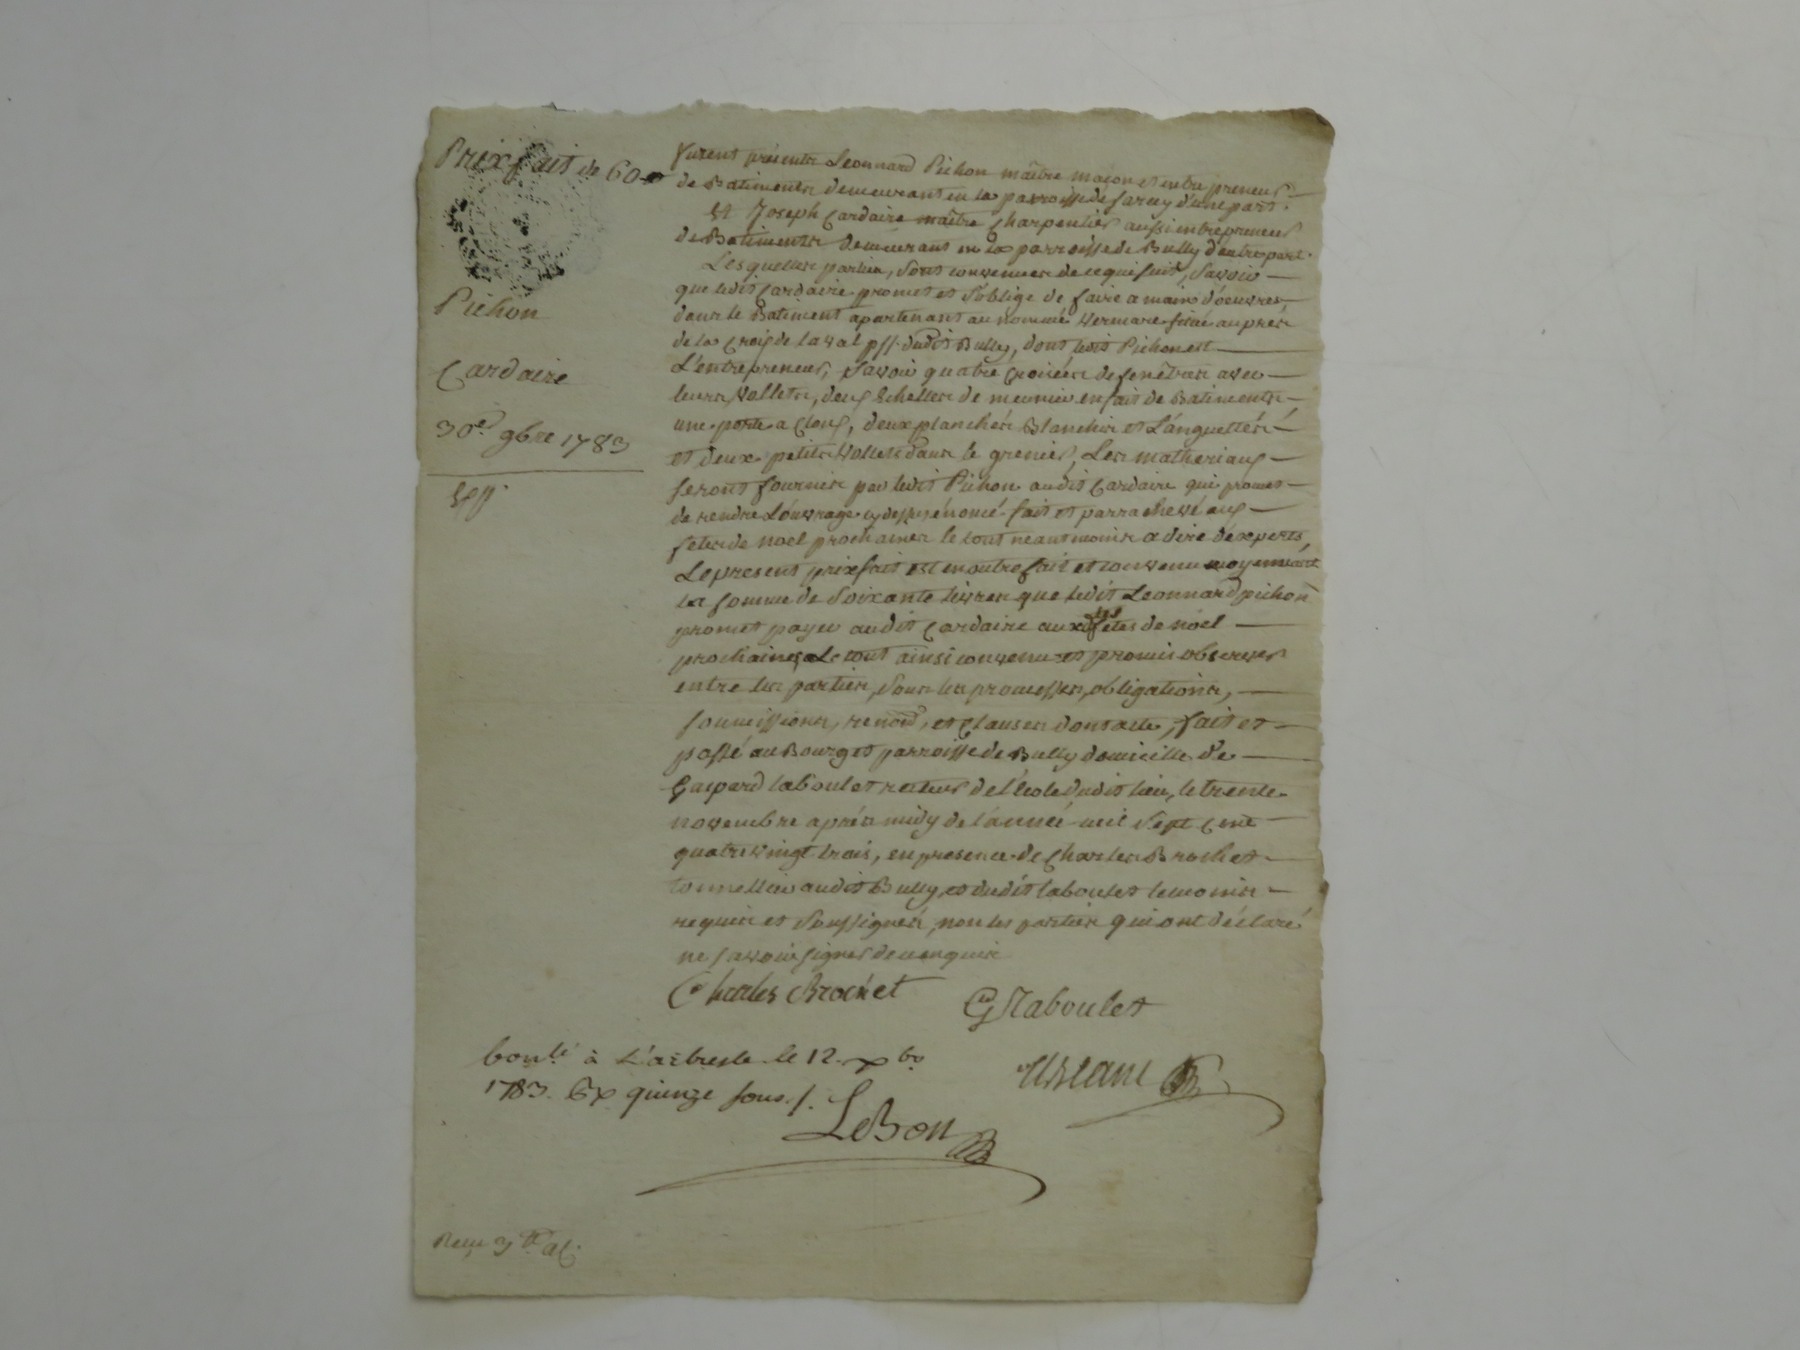 Prix fait de 60
Pichon
Cardaire
30e. 9bre 1783
Exp.
furent présents Leonnard Pichon maître maçon et entrepreneur
de Batiments demeurant en la parroisse de sarcey d'une part.
Et Joseph Cardaire maître Charpentier aussi entrepreneur
de Batiments demeurant en la parroisse de Bully d'autre part.
Lesquelles parties, sont convenues de ce qui suit, Savoir
que ledit Cardaire promet et s'oblige de faire a main d'oeuvres,
dans le Batiment apartenant au nommé Vermare situé auprès
de la Croix de laval psse. dudit Bully, dont ledit Pichon est
L'entrepreneur, Savoir quatre Croisées de fenêtres avec
leurs Vollets, deux Echelles de meunier en fait de Batiments,
une porte a Cloux, deux planchers Blanchis et Languettés
et deux petits Vollets dans le grenier, Les matheriaux
seront fournis par ledit Pichon audit Cardaire qui promet
de rendre L'ouvrage cy dessus énoncé fait et parrachevé aux
fetes de noel prochaines le tout neantmoins a dire d'experts,
Le present prixfait est en outre fait et convenu moyennant
la somme de Soixante livres que ledit Leonnard pichon
promet payer audit Cardaire aux fetes de noel
prochaines Le tout ainsi convenu et promis observer
entre les parties, sous les promesses, obligations,
soumissions, renon, et Clauses dont acte, fait et
passé au Bourg et parroisse de Bully domicille de
Gaspard laboulet recteur de l'école dudit lieu, le trente
novembre après midy de l'année mil Sept Cent
quatre vingt trois, en presence de Charles Brochet
tonnellier audit Bully, et dudit laboulet temoins
requis et soussignés, non les parties qui ont déclaré
ne savoir signer de ce enquis
Charles Brochet
G laboulet
Contlé à L'arbresle le 12 xbre
1783. Rx quinze sous /.
LeBon